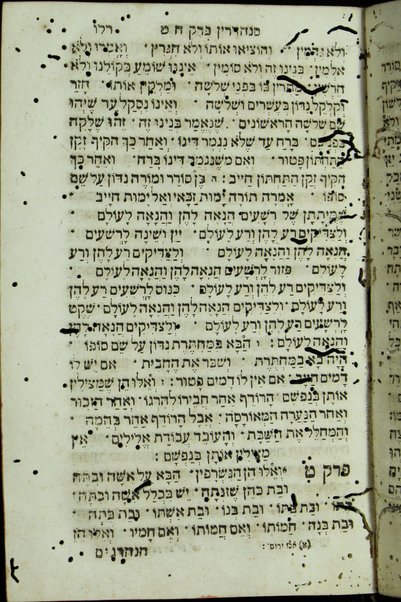 סנהדרין פרק ח ט רלו
ולא גדמין והוציאו אותו ולא חגרין ואמרו ולא
אלמין בנינו זה ולא סומין איננו שומע בקולנו ולא
חרשין מתרין בו בפני שלשה ומלקין אותו חזר
וקלקל נדון בעשרים ושלשה ואינו נסקל עד שיהו
שם שלשה הראשונים שנאמר בנינו זה זהו שלקה
בפניכם ברח עד שלא נגמר דינו ואחר כך הקיף זקן
התחתון פטור ואם משנגמר דינו ברח ואחר כך
הקיף זקן התחתון חייב : בן סורר ומורה נדון על שם
סופו אמרה תורה ימות זכאי ואל ימות חייב
שמיתתן של רשעים הנאה להן והנאה לעולם
ולצדיקים רע להן ורע לעולם יין ושינה לרשעים
הנאה להן והנאה לעולם ולצדיקים רע להן ורע
לעולם פזור לרשעים הנאה להן והנאה לעולם
ולצדיקים רע להן ורע לעולם כנוס לרשעים רע להן
ורע לעולם ולצדיקים הנאה להן והנאה לעולם שקט
לרשעים רע להן ורע לעולם ולצדיקים הנאה להן
והנאה לעולם : הבא במחתרת נדון על שם סופו
היה בא במחתרת ושבר את החבית אם יש לו
דמים חייב אם אין לו דמים פטור : ואלו הן שמצילין
אותן בנפשם הרודף אחר חבירו להרגו ואחר הזכור
ואחר הנערה המאורסה אבל הרודף אחר בהמה
והמחלל את השבת והעובד עבודת אלילים אין
מצילין אותן בנפשם :
פרק ט ואלו הן הנשרפין הבא על אשה ובתה
ובת כהן שזנתה יש בכלל אשה ובתה
בתו ובת בתו ובת בנו ובת אשתו ובת בתה
ובת בנה חמותו ואם חמותו ואם חמיו ואלו הן
הנהרגים